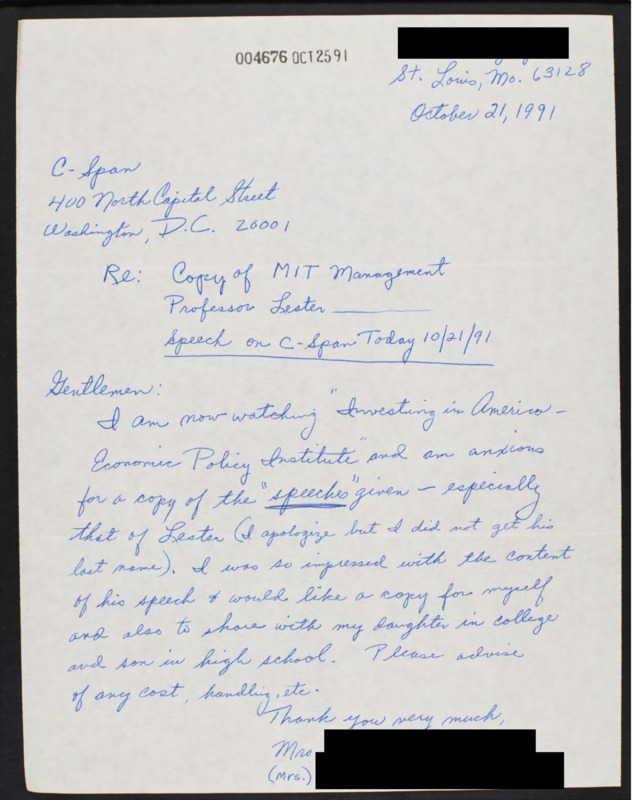 004676 OCT 25 91
St. Louis, Mo. 63128
October 21, 1991
C-Span
400 North Capital Street
Washington, D.C. 20001
Re: Copy of MIT Management
Professor Lester
Speech on C-Span Today 10/21/91
Gentlemen:
I am now watching "Investing in America -
Economic Policy Institute" and am anxious
for a copy of the "speeches" given - especially
that of Lester (I apologize but I did not get his
last name). I was so impressed with the content
of his speech & would like a copy for myself
and also to share with my daughter in college
and son in high school. Please advise
of any cost, handling, etc.
Thank you very much,
Mrs
(Mrs.)